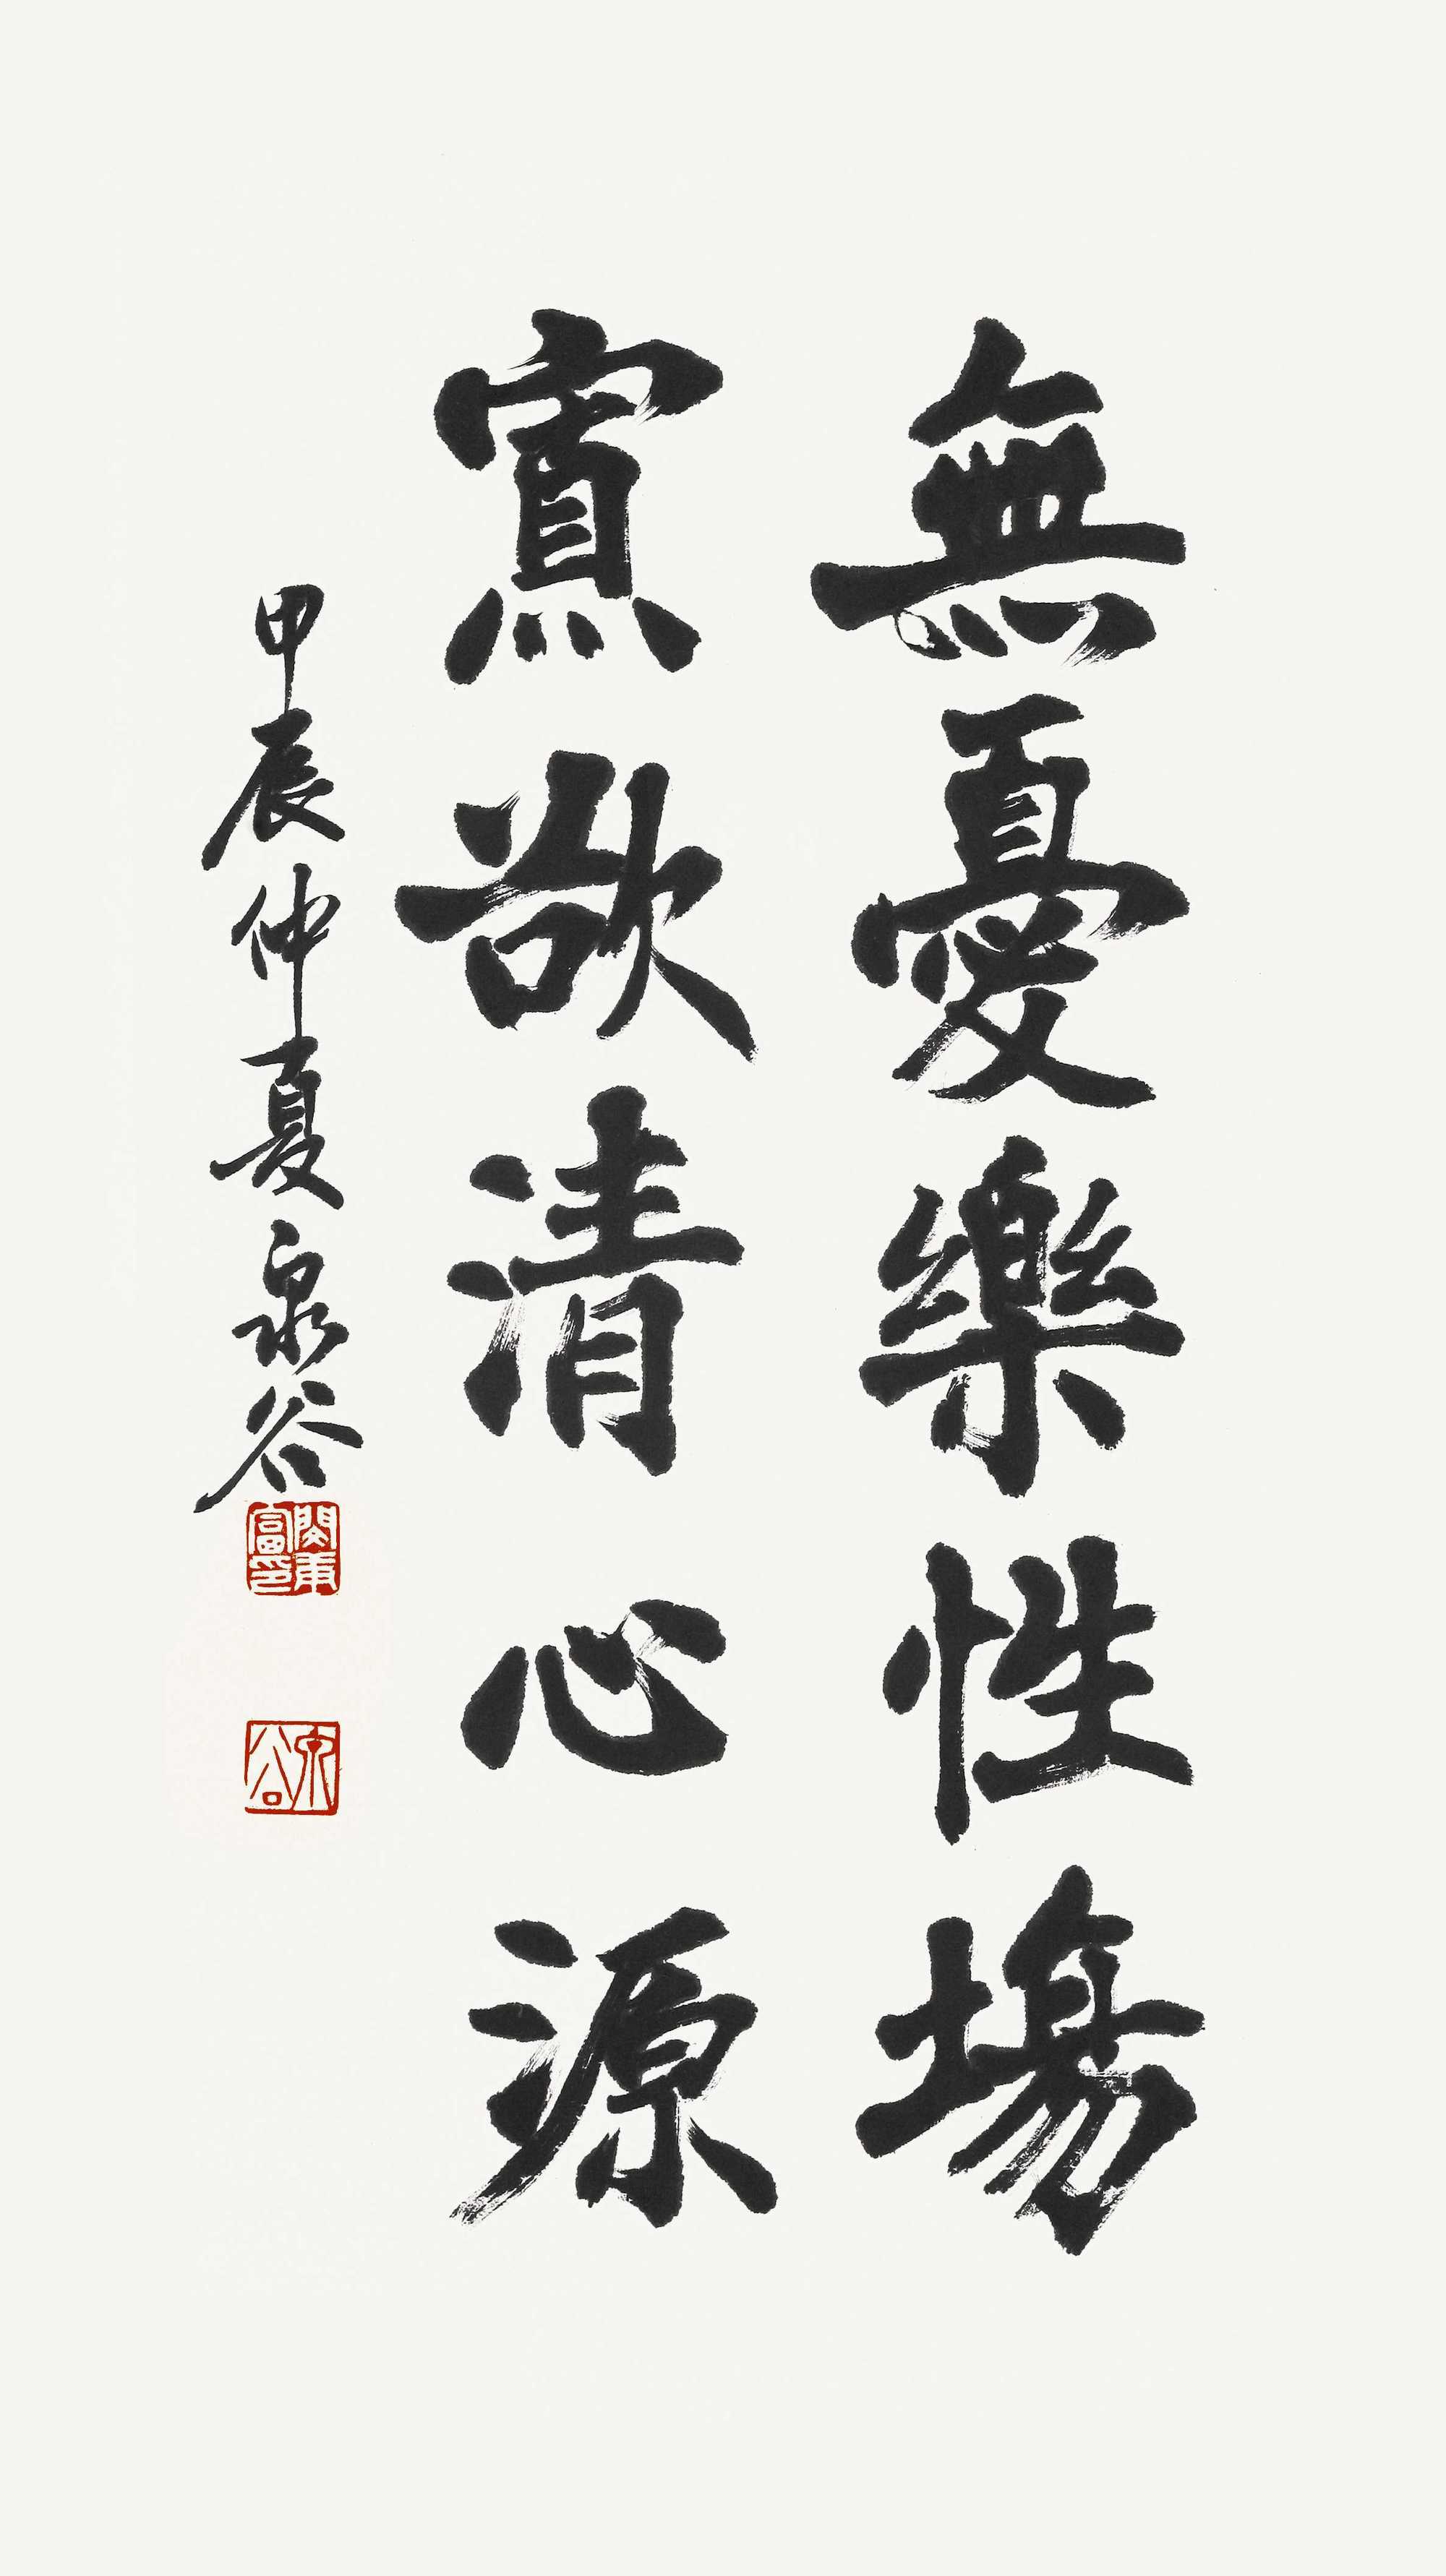 無憂樂性場
寡欲清心源
甲辰仲夏泉谷
閔丙富印
泉谷